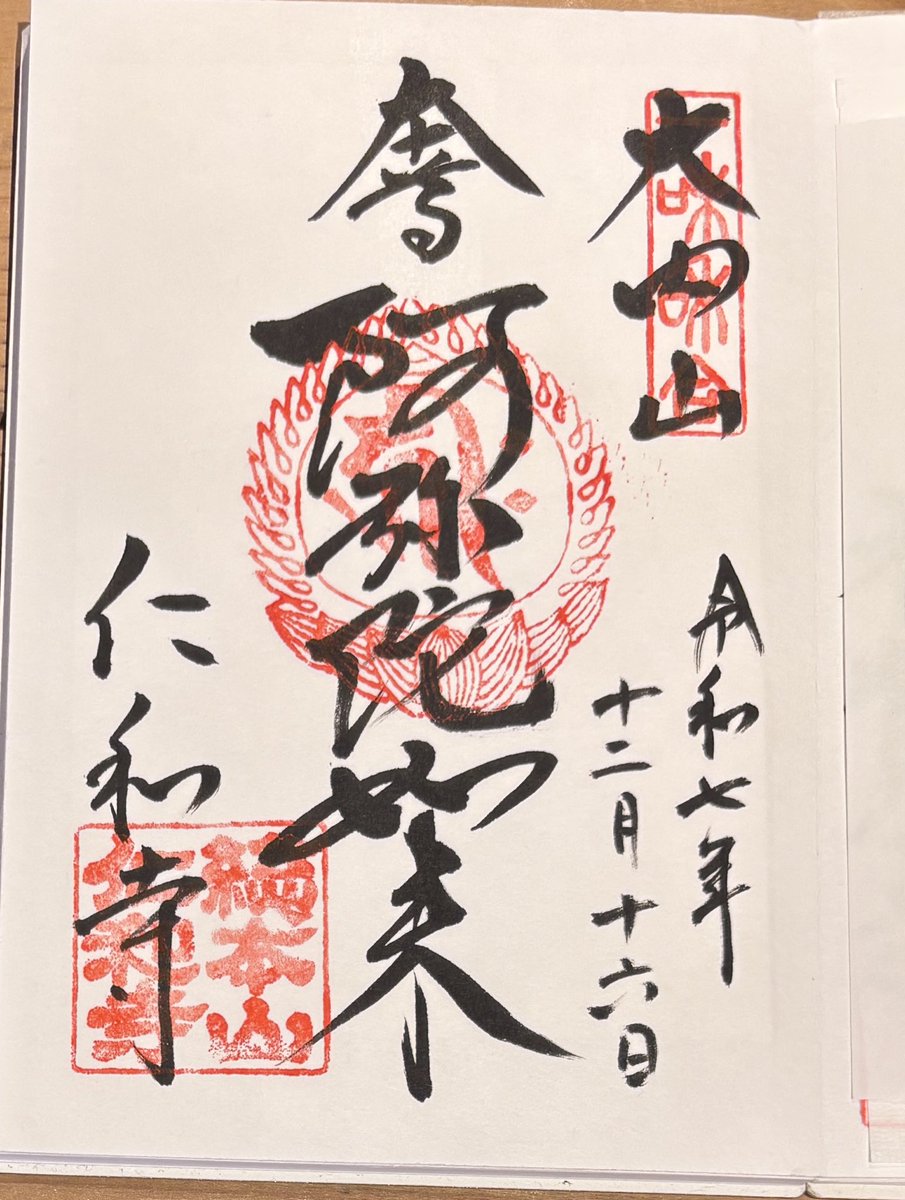 大内山
令和七年
十二月十六日
奉
阿弥陀如来
仁和寺
總本山
仁和寺